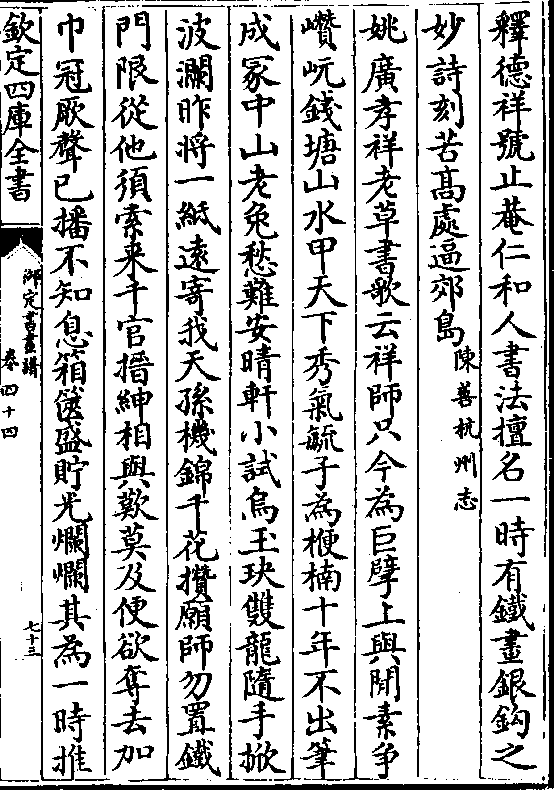 釋德祥號止菴仁和人書法擅名一時有鐵畫銀鈎之
妙詩刻苦高處逼郊島陳善杭州志
姚廣孝祥老草書歌云祥師只今為巨擘上與閒素爭
巑岏錢塘山水甲天下秀氣毓子為楩楠十年不出筆
成冢中山老兔愁難安晴軒小試烏玉玦雙龍隨手掀
波瀾昨將一紙遠寄我天孫機錦千花攢願師勿置鐵
門限從他須索来千官搢紳相與歎莫及便欲奪去加
巾冠厥聲已播不知息箱篋盛貯光爛爛其為一時推
欽定四庫全書
御定書畫譜
卷四十四
七十三